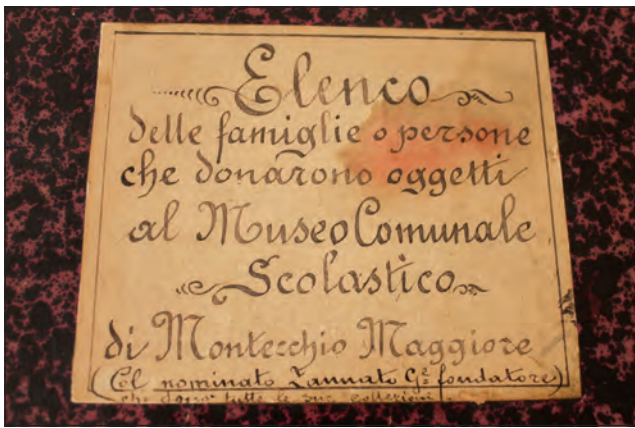 Elenco
delle famiglie o persone
che donarono oggetti
al Museo Comunale
Scolastico
di Montecchio Maggiore
(Col nominato Zannato Ge fondatore)
che donò tutte le sue collezioni.